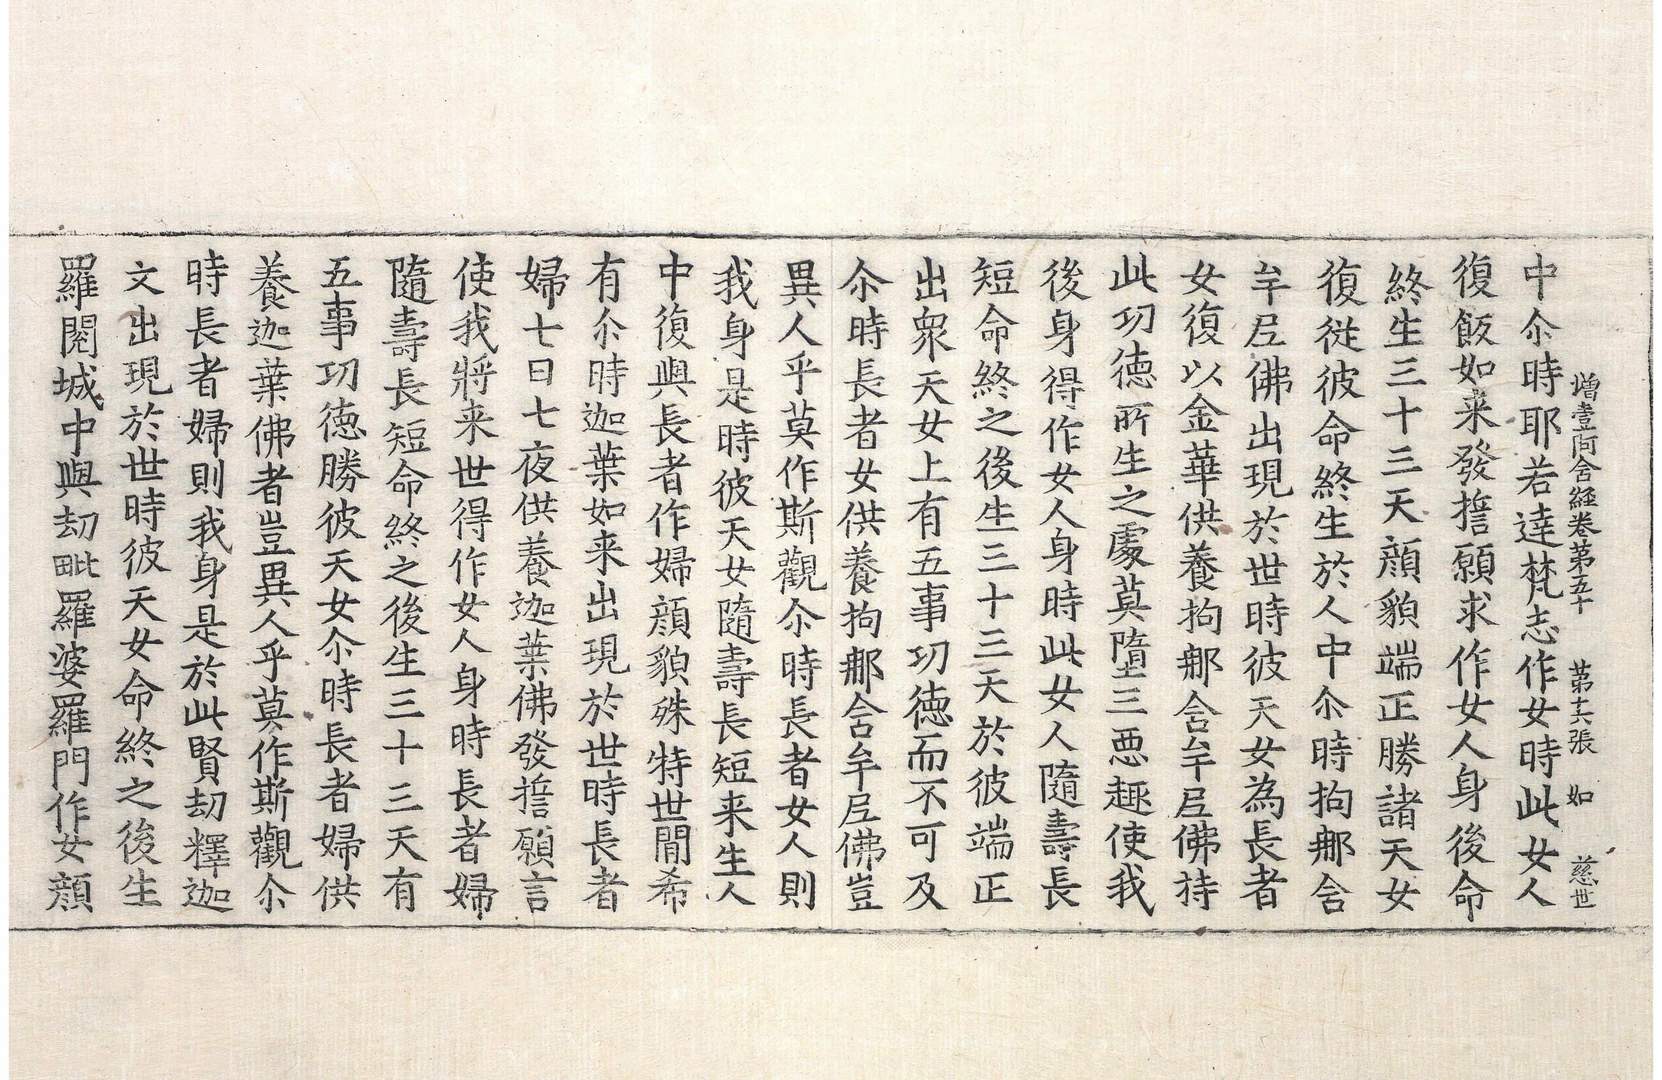 增壹阿含經卷第五十 第十六張 如 慈世
中尒時耶若達梵志作女時此女人
復飯如来發誓願求作女人身後命
終生三十三天顔貌端正勝諸天女
復從彼命終生於人中尒時拘那含
牟尼佛出現於世時彼天女為長者
女復以金華供養拘那含牟尼佛持
此功德所生之處莫墮三惡趣使我
後身得作女人身時此女人隨壽長
短命終之後生三十三天於彼端正
出衆天女上有五事功德而不可及
尒時長者女供養拘那含牟尼佛豈
異人乎莫作斯觀尒時長者女人則
我身是時彼天女隨壽長短来生人
中復與長者作婦顔貌殊特世間希
有尒時迦葉如来出現於世時長者
婦七日七夜供養迦葉佛發誓願言
使我將来世得作女人身時長者婦
隨壽長短命終之後生三十三天有
五事功德勝彼天女尒時長者婦供
養迦葉佛者豈異人乎莫作斯觀尒
時長者婦則我身是於此賢劫釋迦
文出現於世時彼天女命終之後生
羅閱城中與劫毗羅婆羅門作女顔